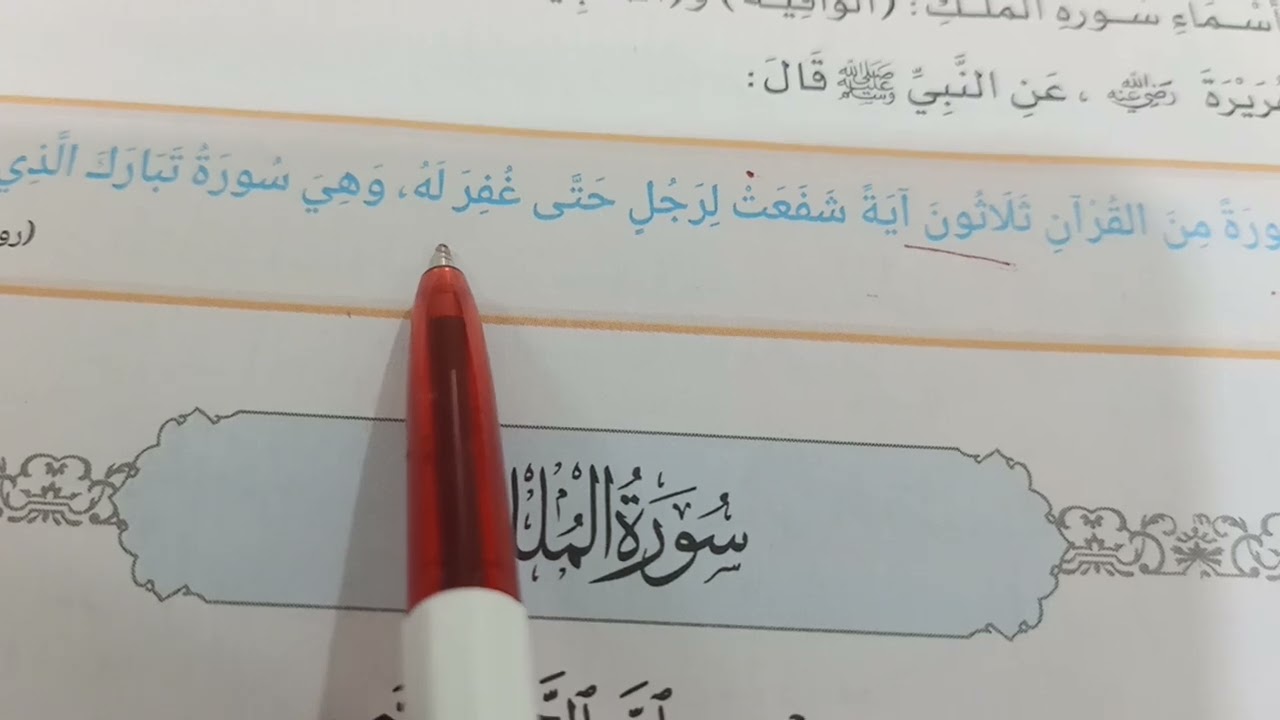 أَسْمَاءِ سُورَةِ المُلْكِ: (الوَاقِيَة) و
عَنِ النَّبِيِّ ﷺ قَالَ:
مِنَ القُرْآنِ ثَلَاثُونَ آيَةً شَفَعَتْ لِرَجُلٍ حَتَّى غُفِرَ لَهُ، وَهِيَ سُورَةُ تَبَارَكَ الَّذِي
سُورَةُ